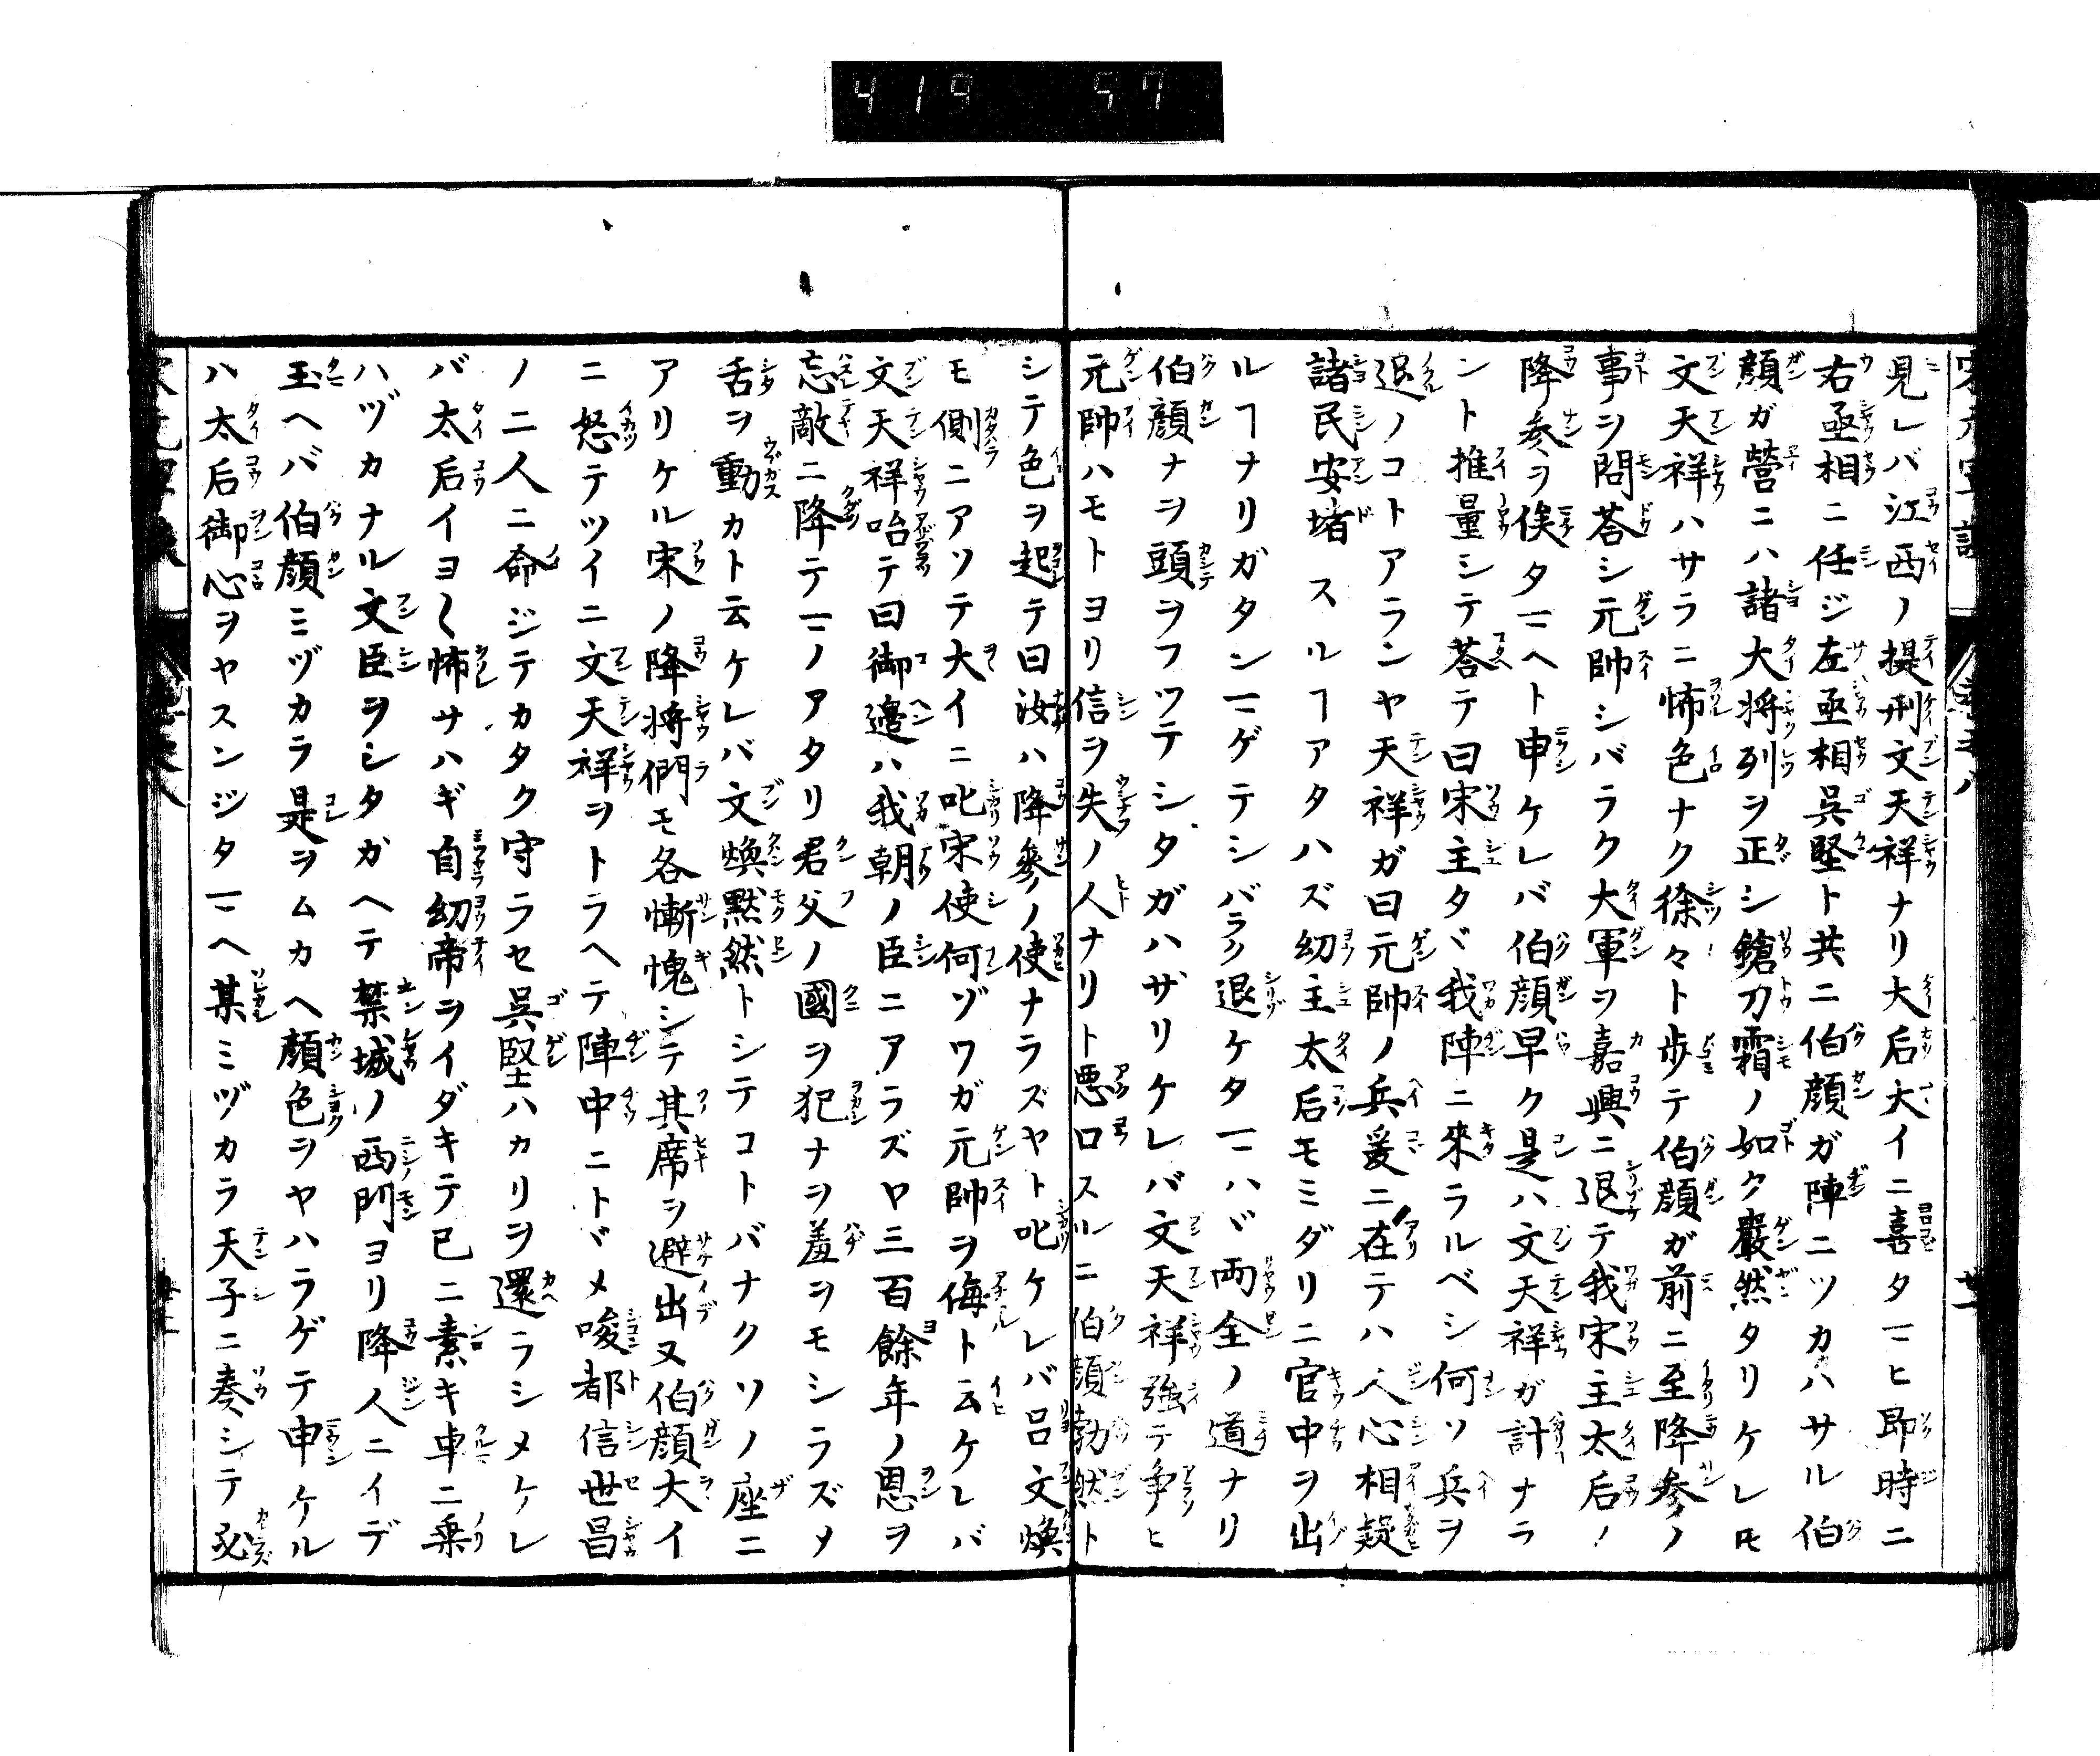 419 57
見レバ江西ノ提刑文天祥ナリ大后大イニ喜タマヒ即時ニ
右丞相ニ任ジ左丞相呉堅ト共ニ伯顔ガ陣ニツカハサル伯
顔ガ營ニハ諸大将列ヲ正シ鎗刀霜ノ如ク嚴然タリケレ𪜈
文天祥ハサラニ怖色ナク徐々ト歩テ伯顔ガ前ニ至降参ノ
事ヲ問荅シ元帥シバラク大軍ヲ嘉興ニ退テ我宋主太后ノ
降参ヲ俟タマヘト申ケレバ伯顔早ク是ハ文天祥ガ計ナラ
ント推量シテ荅テ曰宋主タヾ我陣ニ來ラルベシ何ソ兵ヲ
退ノコトアランヤ天祥ガ曰元帥ノ兵爰ニ在テハ人心相疑
諸民安堵スルヿアタハズ幼主太后モミダリニ宮中ヲ出
ルヿナリガタシマゲテシバラク退ケタマハヾ両全ノ道ナリ
伯顔ナヲ頭ヲフツテシタガハザリケレバ文天祥強テ争ヒ
元帥ハモトヨリ信ヲ失ノ人ナリト悪口スルニ伯顔勃然ト
シテ色ヲ起テ曰汝ハ降參ノ使ナラズヤト叱ケレバ呂文煥
モ側ニアツテ大イニ叱宋使何ゾワガ元帥ヲ侮ト云ケレバ
文天祥咍テ曰御邉ハ我朝ノ臣ニアラズヤ三百餘年ノ恩ヲ
忘敵ニ降テマノアタリ君父ノ國ヲ犯ナヲ羞ヲモシラズメ
舌ヲ動カト云ケレバ文煥黙然トシテコトバナクソノ座ニ
アリケル宋ノ降将們モ各慚愧シテ其席ヲ避出又伯顔大イ
ニ怒テツイニ文天祥ヲトラヘテ陣中ニトヾメ唆都信世昌
ノ二人ニ命ジテカタク守ラセ呉堅ハカリヲ還ラシメケレ
バ太后イヨ〱怖サハギ自幼帝ヲイダキテ已ニ素キ車ニ乗
ハヅカナル文臣ヲシタガヘテ禁城ノ西門ヨリ降人ニイデ
玉ヘバ伯顔ミヅカラ是ヲムカヘ顔色ヲヤハラゲテ申ケル
ハ太后御心ヲヤスンジタマヘ某ミヅカラ天子ニ奏シテ必